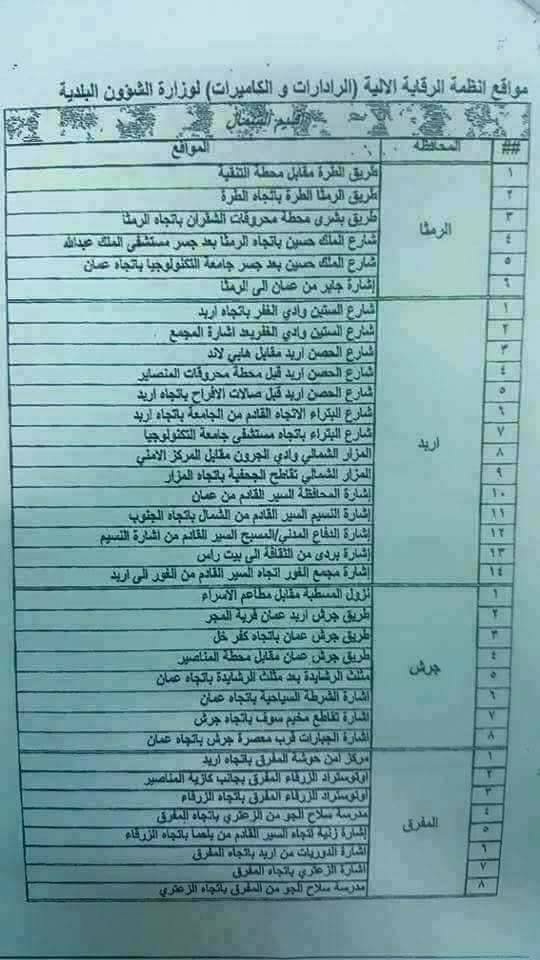 مواقع انظمة الرقابة الالية (الرادارات و الكاميرات) لوزارة الشؤون البلدية
إقليم الشمال
## المحافظه المواقع
الرمثا
١ طريق الطرة مقابل محطة التنقية
٢ طريق الرمثا الطرة باتجاه الطرة
٣ طريق بشرى محطة محروقات الشقران باتجاه الرمثا
٤ شارع الملك حسين باتجاه الرمثا بعد جسر مستشفى الملك عبدالله
٥ شارع الملك حسين بعد جسر جامعة التكنولوجيا باتجاه عمان
٦ إشارة جابر من عمان الى الرمثا
اربد
١ شارع الستين وادي الغفر باتجاه اربد
٢ شارع الستين وادي الغفربعد اشارة المجمع
٣ شارع الحصن اربد مقابل هابي لاند
٤ شارع الحصن اربد قبل محطة محروقات المناصير
٥ شارع الحصن اربد قبل صالات الافراح باتجاه اربد
٦ شارع البتراء الاتجاه القادم من الجامعة باتجاه اربد
٧ شارع البتراء باتجاه مستشفى جامعة التكنولوجيا
٨ المزار الشمالي وادي الجرون مقابل المركز الامني
٩ المزار الشمالي تقاطع الجحفية باتجاه المزار
١٠ إشارة المحافظة السير القادم من عمان
١١ إشارة النسيم السير القادم من الشمال باتجاه الجنوب
١٢ إشارة الدفاع المدني/المسبح السير القادم من اشارة النسيم
١٣ إشارة بردى من الثقافة الى بيت راس
١٤ إشارة مجمع الغور اتجاه السير القادم من الغور الى اربد
جرش
١ نزول المسطبة مقابل مطاعم الاسراء
٢ طريق جرش اربد عمان قرية المجر
٣ طريق جرش عمان باتجاه كفر خل
٤ طريق جرش عمان مقابل محطة المناصير
٥ مثلث الرشايدة بعد مثلث الرشايدة باتجاه عمان
٦ اشارة الشرطة السياحية باتجاه عمان
٧ اشارة تقاطع مخيم سوف باتجاه جرش
٨ اشارة الجبارات قرب معصرة جرش باتجاه عمان
المفرق
١ مركز امن حوشة المفرق باتجاه اربد
٢ اوتوستراد الزرقاء المفرق بجانب كازية المناصير
٣ اوتوستراد الزرقاء المفرق باتجاه الزرقاء
٤ مدرسة سلاح الجو من الزعتري باتجاه المفرق
٥ إشارة زنية اتجاه السير القادم من بلعما باتجاه الزرقاء
٦ اشارة الدوريات من اربد باتجاه المفرق
٧ اشارة الزعتري باتجاه المفرق
٨ مدرسة سلاح الجو من المفرق باتجاه الزعتري